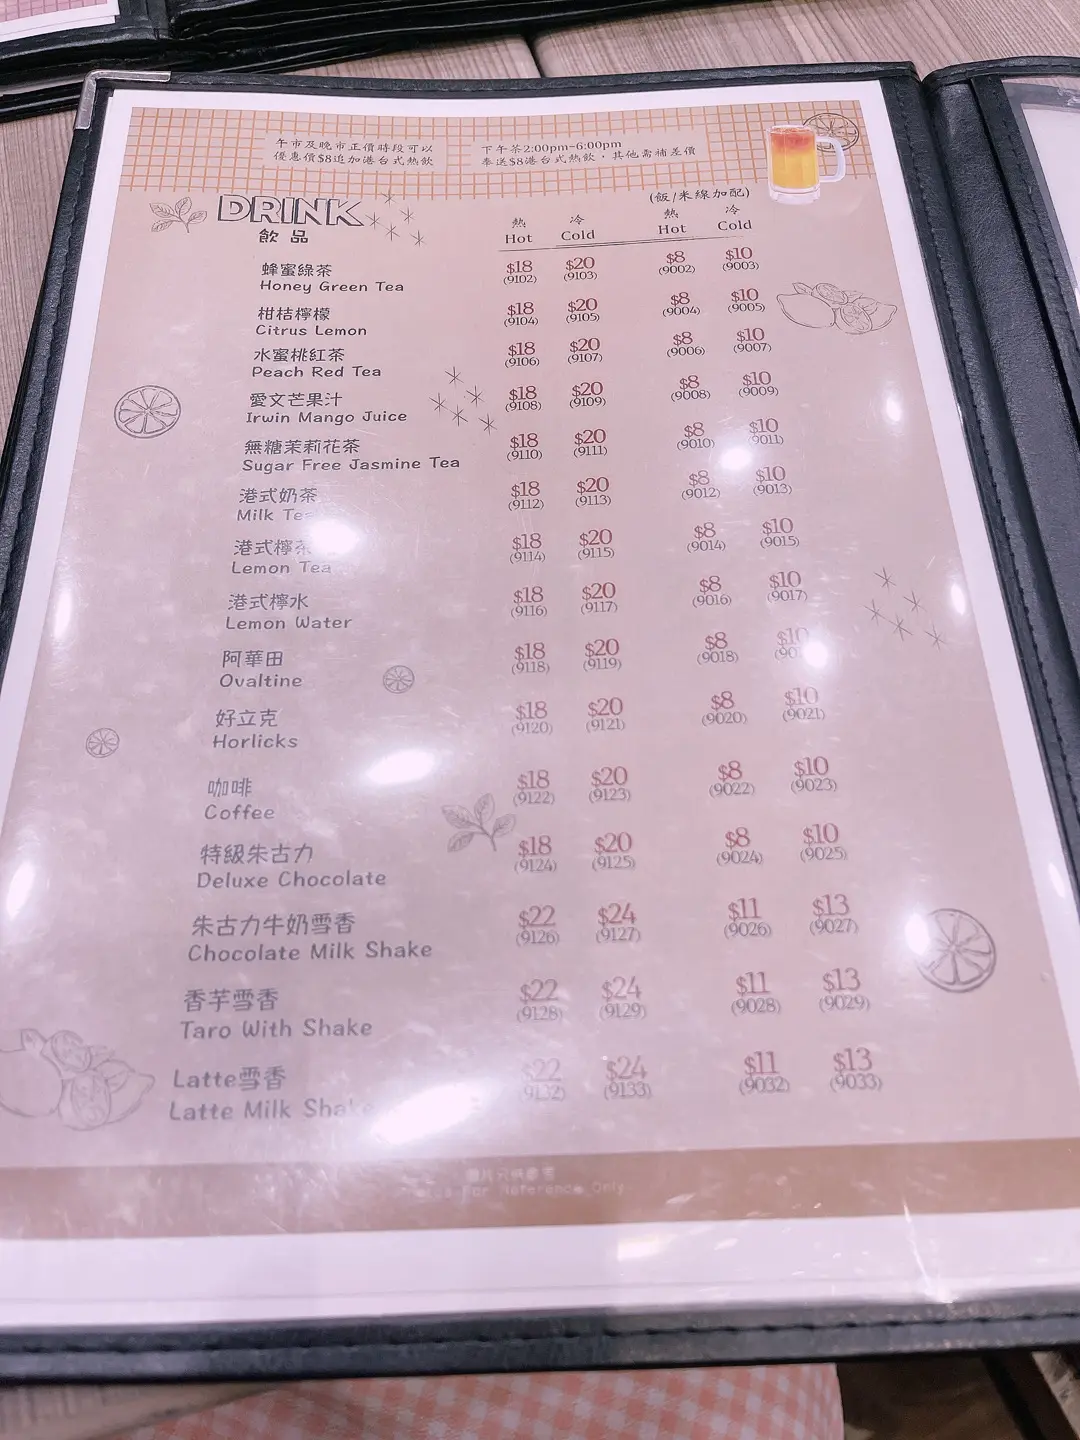 午市及晚市正價時段可以
優惠價$8追加港台式熱飲
下午茶2:00pm-6:00pm
奉送$8港台式熱飲，其他需補差價
DRINK
飲品
(飯/米線加配)
熱 冷 熱 冷
Hot Cold Hot Cold
蜂蜜綠茶 $18 $20 $8 $10
Honey Green Tea (9102) (9103) (9002) (9003)
柑桔檸檬 $18 $20 $8 $10
Citrus Lemon (9104) (9105) (9004) (9005)
水蜜桃紅茶 $18 $20 $8 $10
Peach Red Tea (9106) (9107) (9006) (9007)
愛文芒果汁 $18 $20 $8 $10
Irwin Mango Juice (9108) (9109) (9008) (9009)
無糖茉莉花茶 $18 $20 $8 $10
Sugar Free Jasmine Tea (9110) (9111) (9010) (9011)
港式奶茶 $18 $20 $8 $10
Milk Tea (9112) (9113) (9012) (9013)
港式檸茶 $18 $20 $8 $10
Lemon Tea (9114) (9115) (9014) (9015)
港式檸水 $18 $20 $8 $10
Lemon Water (9116) (9117) (9016) (9017)
阿華田 $18 $20 $8 $10
Ovaltine (9118) (9119) (9018)
好立克 $18 $20 $8 $10
Horlicks (9120) (9121) (9020) (9021)
咖啡 $18 $20 $8 $10
Coffee (9122) (9123) (9022) (9023)
特級朱古力 $18 $20 $8 $10
Deluxe Chocolate (9124) (9125) (9024) (9025)
朱古力牛奶雪香 $22 $24 $11 $13
Chocolate Milk Shake (9126) (9127) (9026) (9027)
香芋雪香 $22 $24 $11 $13
Taro With Shake (9128) (9129) (9028) (9029)
Latte雪香 $22 $24 $11 $13
Latte Milk Shake (9132) (9133) (9032) (9033)
For Reference Only